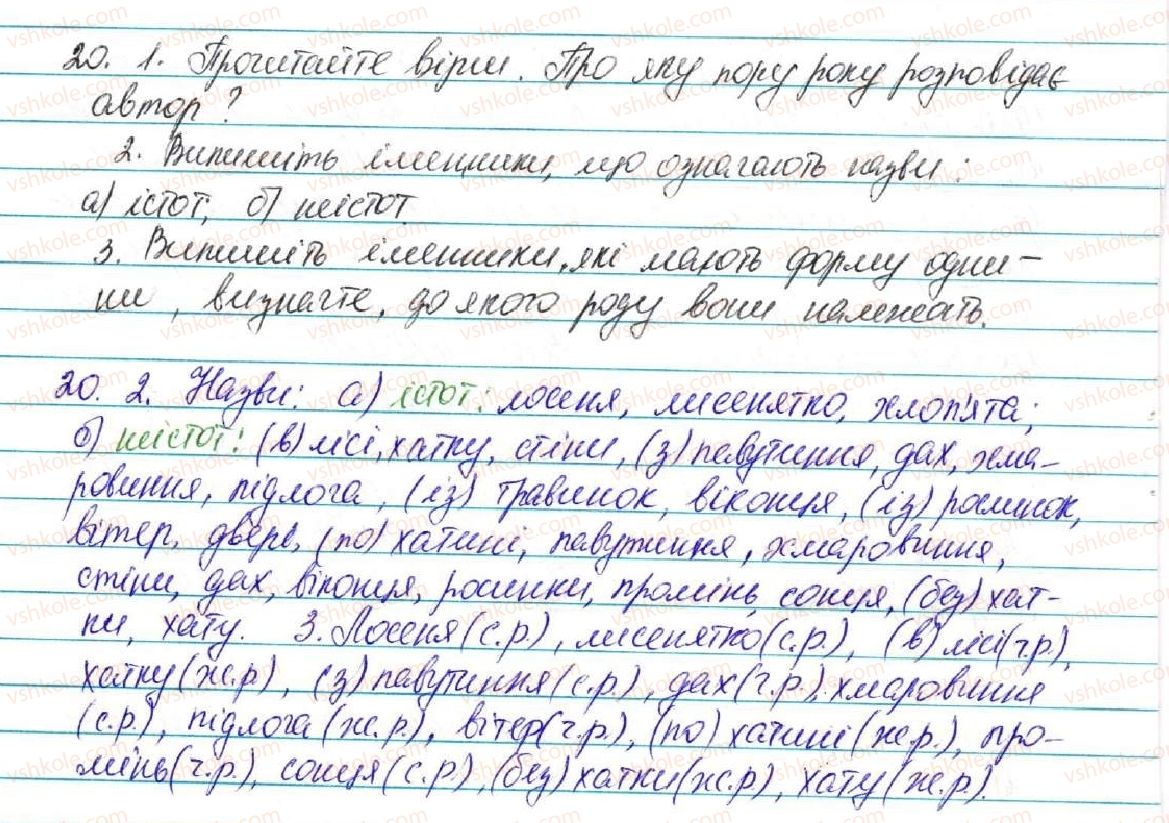 20. 1. Прочитайте вірш. Про яку пору року розповідає
автор?
2. Випишіть іменники, що означають назви:
а) істот; б) неістот.
3. Випишіть іменники, які мають форму одни-
ни, визначте, до якого роду вони належать.
20. 2. Назви: а) істот: лосеня, лисенятко, хлоп'ята;
б) неістот: (в) лісі, хатку, стіни, (з) павутиння, дах, хма-
ровиння, підлога, (із) травинок, віконця, (із) росинок,
вітер, двері, (по) хатині, павутиння, хмаровиння,
стіни, дах, віконця, росинки, промінь, сонця, (без) хат-
ки, хату. 3. Лосеня (с.р.), лисенятко (с.р.), (в) лісі (ч.р.),
хатку (ж.р.), (з) павутиння (с.р.), дах (ч.р.), хмаровиння
(с.р.), підлога (ж.р.), вітер (ч.р.), (по) хатині (ж.р.), про-
мінь (ч.р.), сонця (с.р.), (без) хатки (ж.р.), хату (ж.р.).